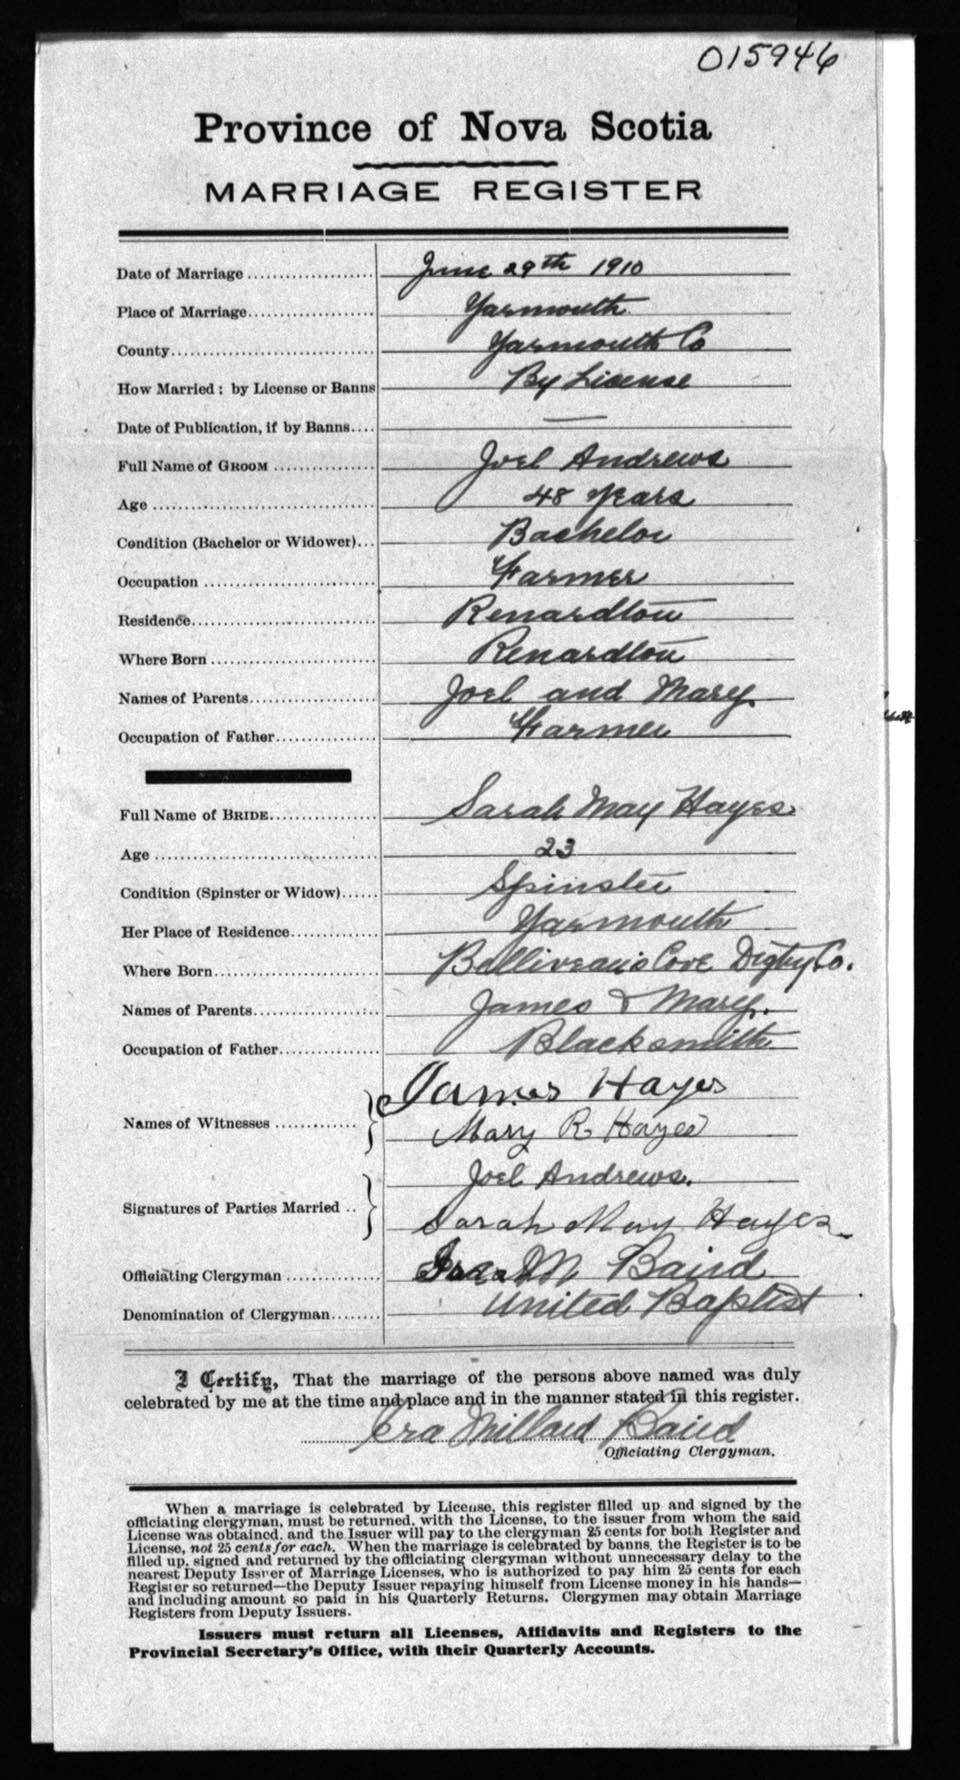 015946
Province of Nova Scotia
MARRIAGE REGISTER
Date of Marriage .................... June 29th 1910
Place of Marriage.................... Yarmouth
County.................... Yarmouth Co
How Married: by License or Banns By License
Date of Publication, if by Banns.... —
Full Name of GROOM .................... Joel Andrews
Age .................... 48 years
Condition (Bachelor or Widower)... Bachelor
Occupation .................... Farmer
Residence.................... Renardton
Where Born .................... Renardton
Names of Parents.................... Joel and Mary
Occupation of Father.................... Farmer
Full Name of BRIDE.................... Sarah May Hayes
Age .................... 23
Condition (Spinster or Widow)...... Spinster
Her Place of Residence.................... Yarmouth
Where Born.................... Belliveau's Cove Digby Co.
Names of Parents.................... James & Mary.
Occupation of Father.................... Blacksmith
Names of Witnesses .................... James Hayes
Mary R Hayes
Signatures of Parties Married .. Joel Andrews.
Sarah May Hayes
Officiating Clergyman .................... Ira M Baird
Denomination of Clergyman........ United Baptist
I Certify, That the marriage of the persons above named was duly
celebrated by me at the time and place and in the manner stated in this register.
Ira Millard Baird
Officiating Clergyman.
When a marriage is celebrated by License, this register filled up and signed by the
officiating clergyman, must be returned, with the License, to the issuer from whom the said
License was obtained, and the Issuer will pay to the clergyman 25 cents for both Register and
License, not 25 cents for each. When the marriage is celebrated by banns, the Register is to be
filled up, signed and returned by the officiating clergyman without unnecessary delay to the
nearest Deputy Issuer of Marriage Licenses, who is authorized to pay him 25 cents for each
Register so returned—the Deputy Issuer repaying himself from License money in his hands—
and including amount so paid in his Quarterly Returns. Clergymen may obtain Marriage
Registers from Deputy Issuers.
Issuers must return all Licenses, Affidavits and Registers to the
Provincial Secretary's Office, with their Quarterly Accounts.